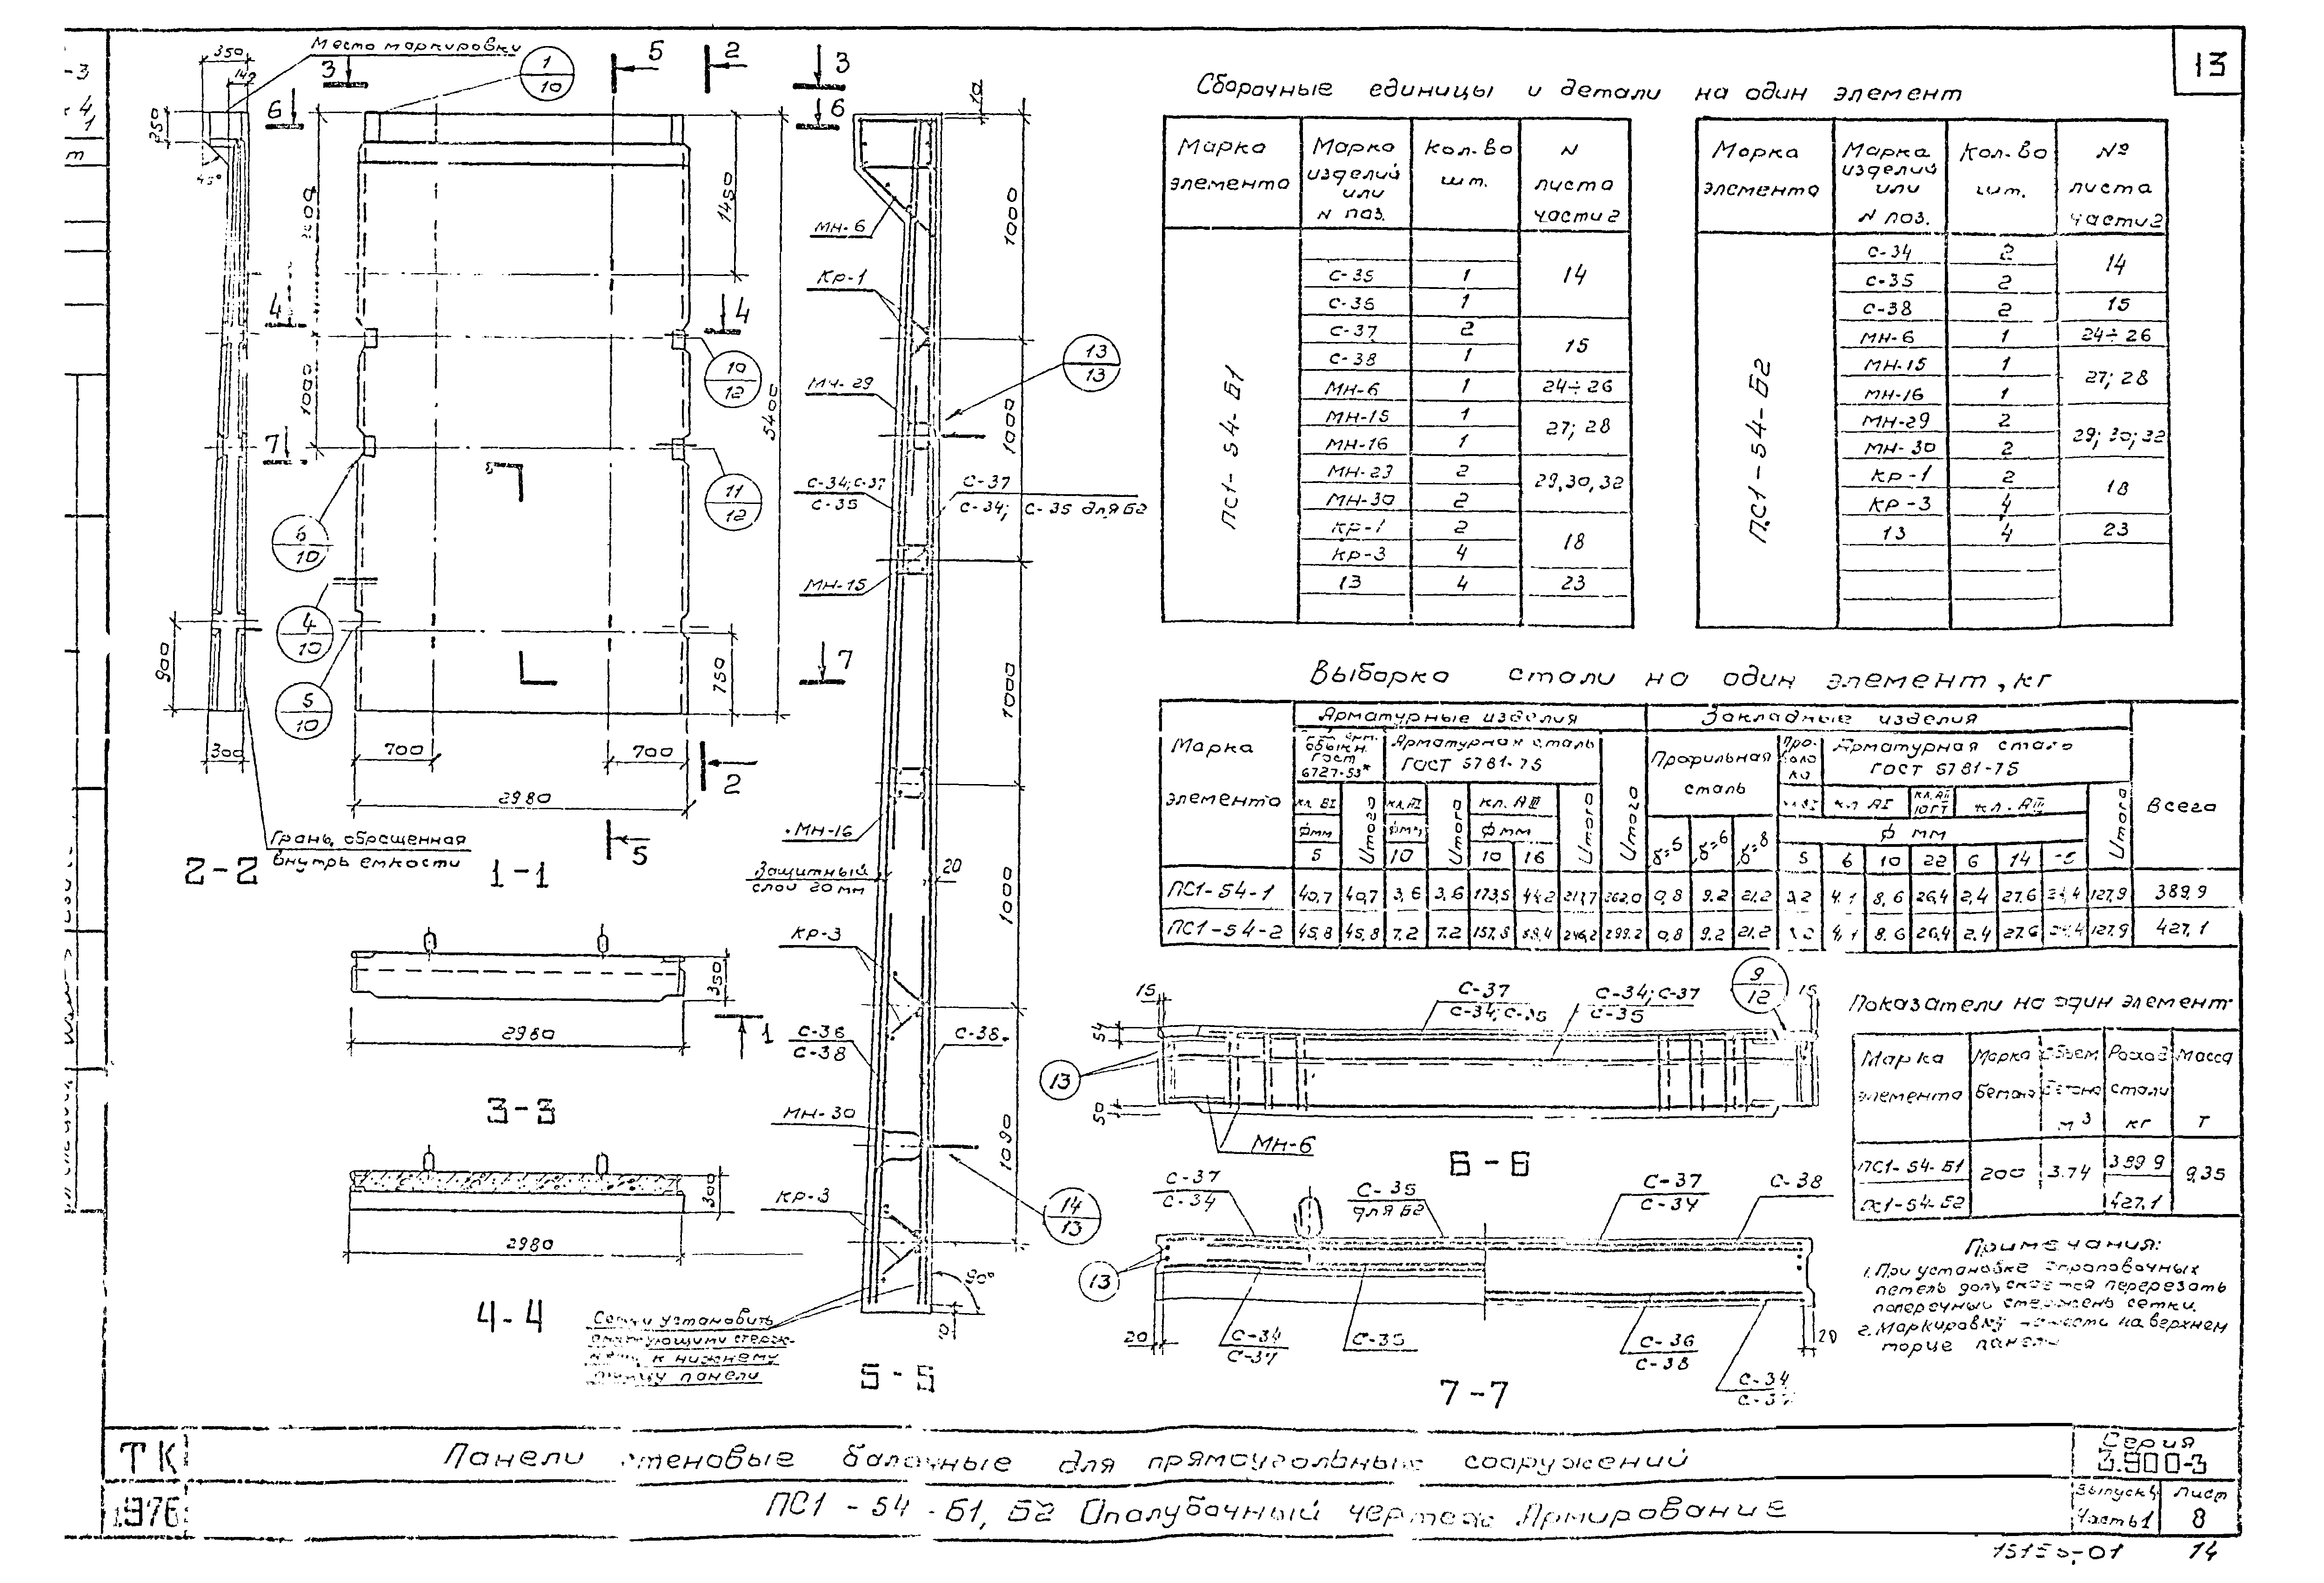 13
Место маркировки
350
142
250
45°
900
300
Грань, обращенная
внутрь емкости
2-2
3
6
4
7
1
10
5
2
1450
1000
5400
10
12
11
12
6
10
4
10
5
10
750
700
700
2980
1-1
5
2
350
2980
1
3-3
300
2980
4-4
3
6
7
10
МН-6
КР-1
МН-29
С-34; С-37
С-35
С-37
С-34; С-35 для Б2
МН-15
МН-16
Защитный
слой 20 мм
20
КР-3
С-36
С-38
С-38
МН-30
КР-3
13
13
14
13
1000
1000
1000
1000
1090
90°
Сетки установить
к нижнему
панели
5-5
Сборочные единицы и детали на один элемент
Марка элемента Марка изделий или N поз. Кол-во шт. N листа части 2
ПС1-54-Б1
С-35 1 14
С-36 1
С-37 2 15
С-38 1
МН-6 1 24÷26
МН-15 1 27; 28
МН-16 1
МН-23 2 29,30,32
МН-30 2
КР-1 2 18
КР-3 4
13 4 23
Марка элемента Марка изделий или N поз. Кол-во шт. № листа части 2
ПС1-54-Б2
С-34 2 14
С-35 2
С-38 2 15
МН-6 1 24÷26
МН-15 1 27; 28
МН-16 1
МН-29 2 29; 30; 32
МН-30 2
КР-1 2 18
КР-3 4
13 4 23
Выборка стали на один элемент, кг
Марка элемента Арматурные изделия Закладные изделия Всего
обыкн. ГОСТ 6727-53* Арматурная сталь ГОСТ 5781-75 Профильная сталь Арматурная сталь ГОСТ 5781-75
кл. ВI Итого кл. АI Итого кл. АIII Итого Итого δ=5 δ=6 δ=8 кл. АI кл. АII 10ГТ кл. АIII Итого
фмм фмм фмм ф мм
5 10 10 16 5 6 10 22 6 14
ПС1-54-1 40,7 40,7 3,6 3,6 173,5 44,2 217,7 262,0 0,8 9.2 21,2 4,1 8,6 26,4 2,4 27.6 127,9 389,9
ПС1-54-2 45,8 45,8 7.2 7.2 157,8 88,4 246,2 299.2 0,8 9.2 21,2 4,1 8.6 26,4 2,4 27.6 127,9 427,1
15
54
50
13
С-37
С-34; С-35
С-34; С-37
С-35
9
12
15
МН-6
6-6
С-37
С-34
С-35
для Б2
С-37
С-34
С-38
13
20
С-34
С-37
С-35
С-36
С-38
С-34
С-37
20
7-7
Показатели на один элемент
Марка элемента Марка бетона Объем бетона м³ Расход стали кг Масса т
ПС1-54-Б1 200 3.74 389 9 9,35
ПС1-54-Б2 427,1
Примечания:
1. При установке строповочных
петель допускается перерезать
поперечный стержень сетки.
2. Маркировку нанести на верхнем
торце панели
ТК
1976
Панели стеновые балочные для прямоугольных сооружений
ПС1-54-Б1, Б2 Опалубочный чертеж Армирование
Серия
3.900-3
Выпуск 4
Часть 1
Лист
8
14